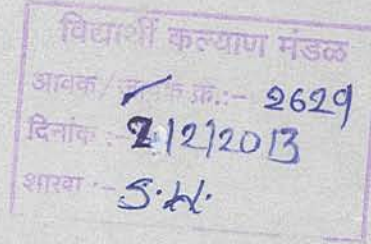 विद्यार्थी कल्याण मंडळ
आवक/जावक क्र.:- 2629
दिनांक :- 2/2/2013
शाखा :- S.W.